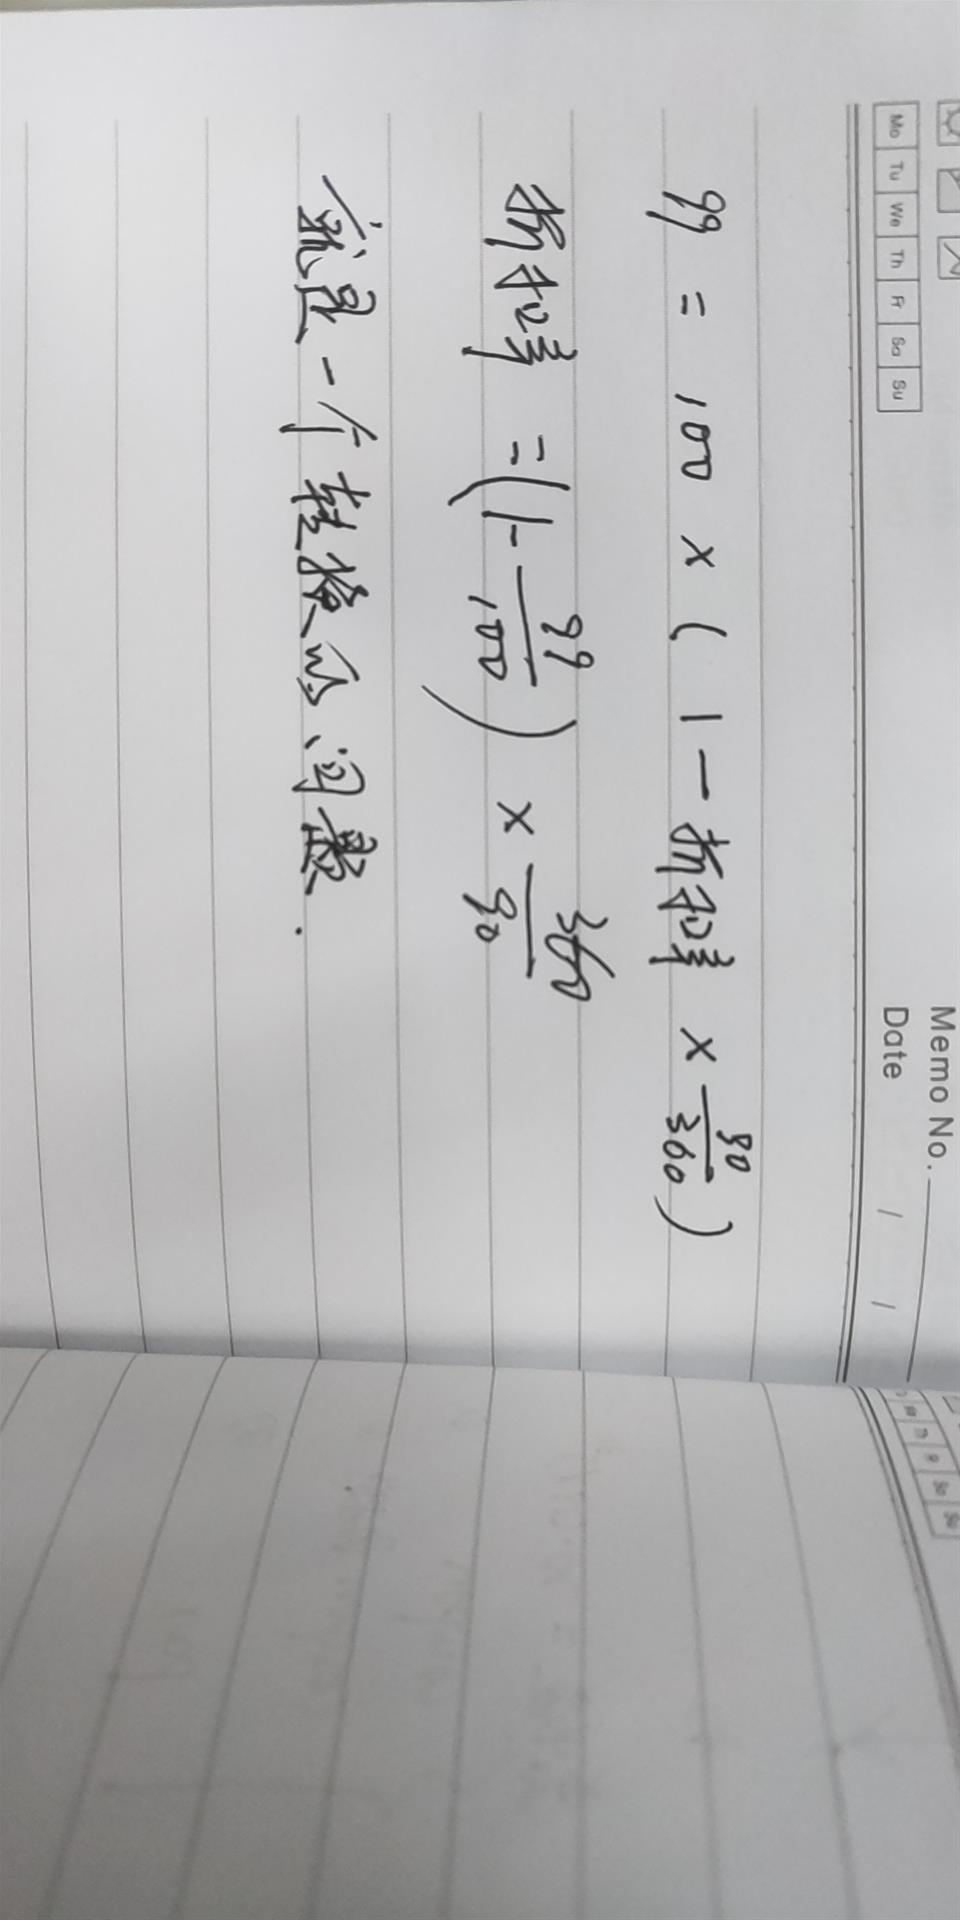 Memo No.
Mo Tu We Th Fr Sa Su
Date / /
99 = 100 × ( 1 — 折扣率 × 90/360 )
折扣率 = ( 1 - 99/100 ) × 360/90
就是一个转换的问题.